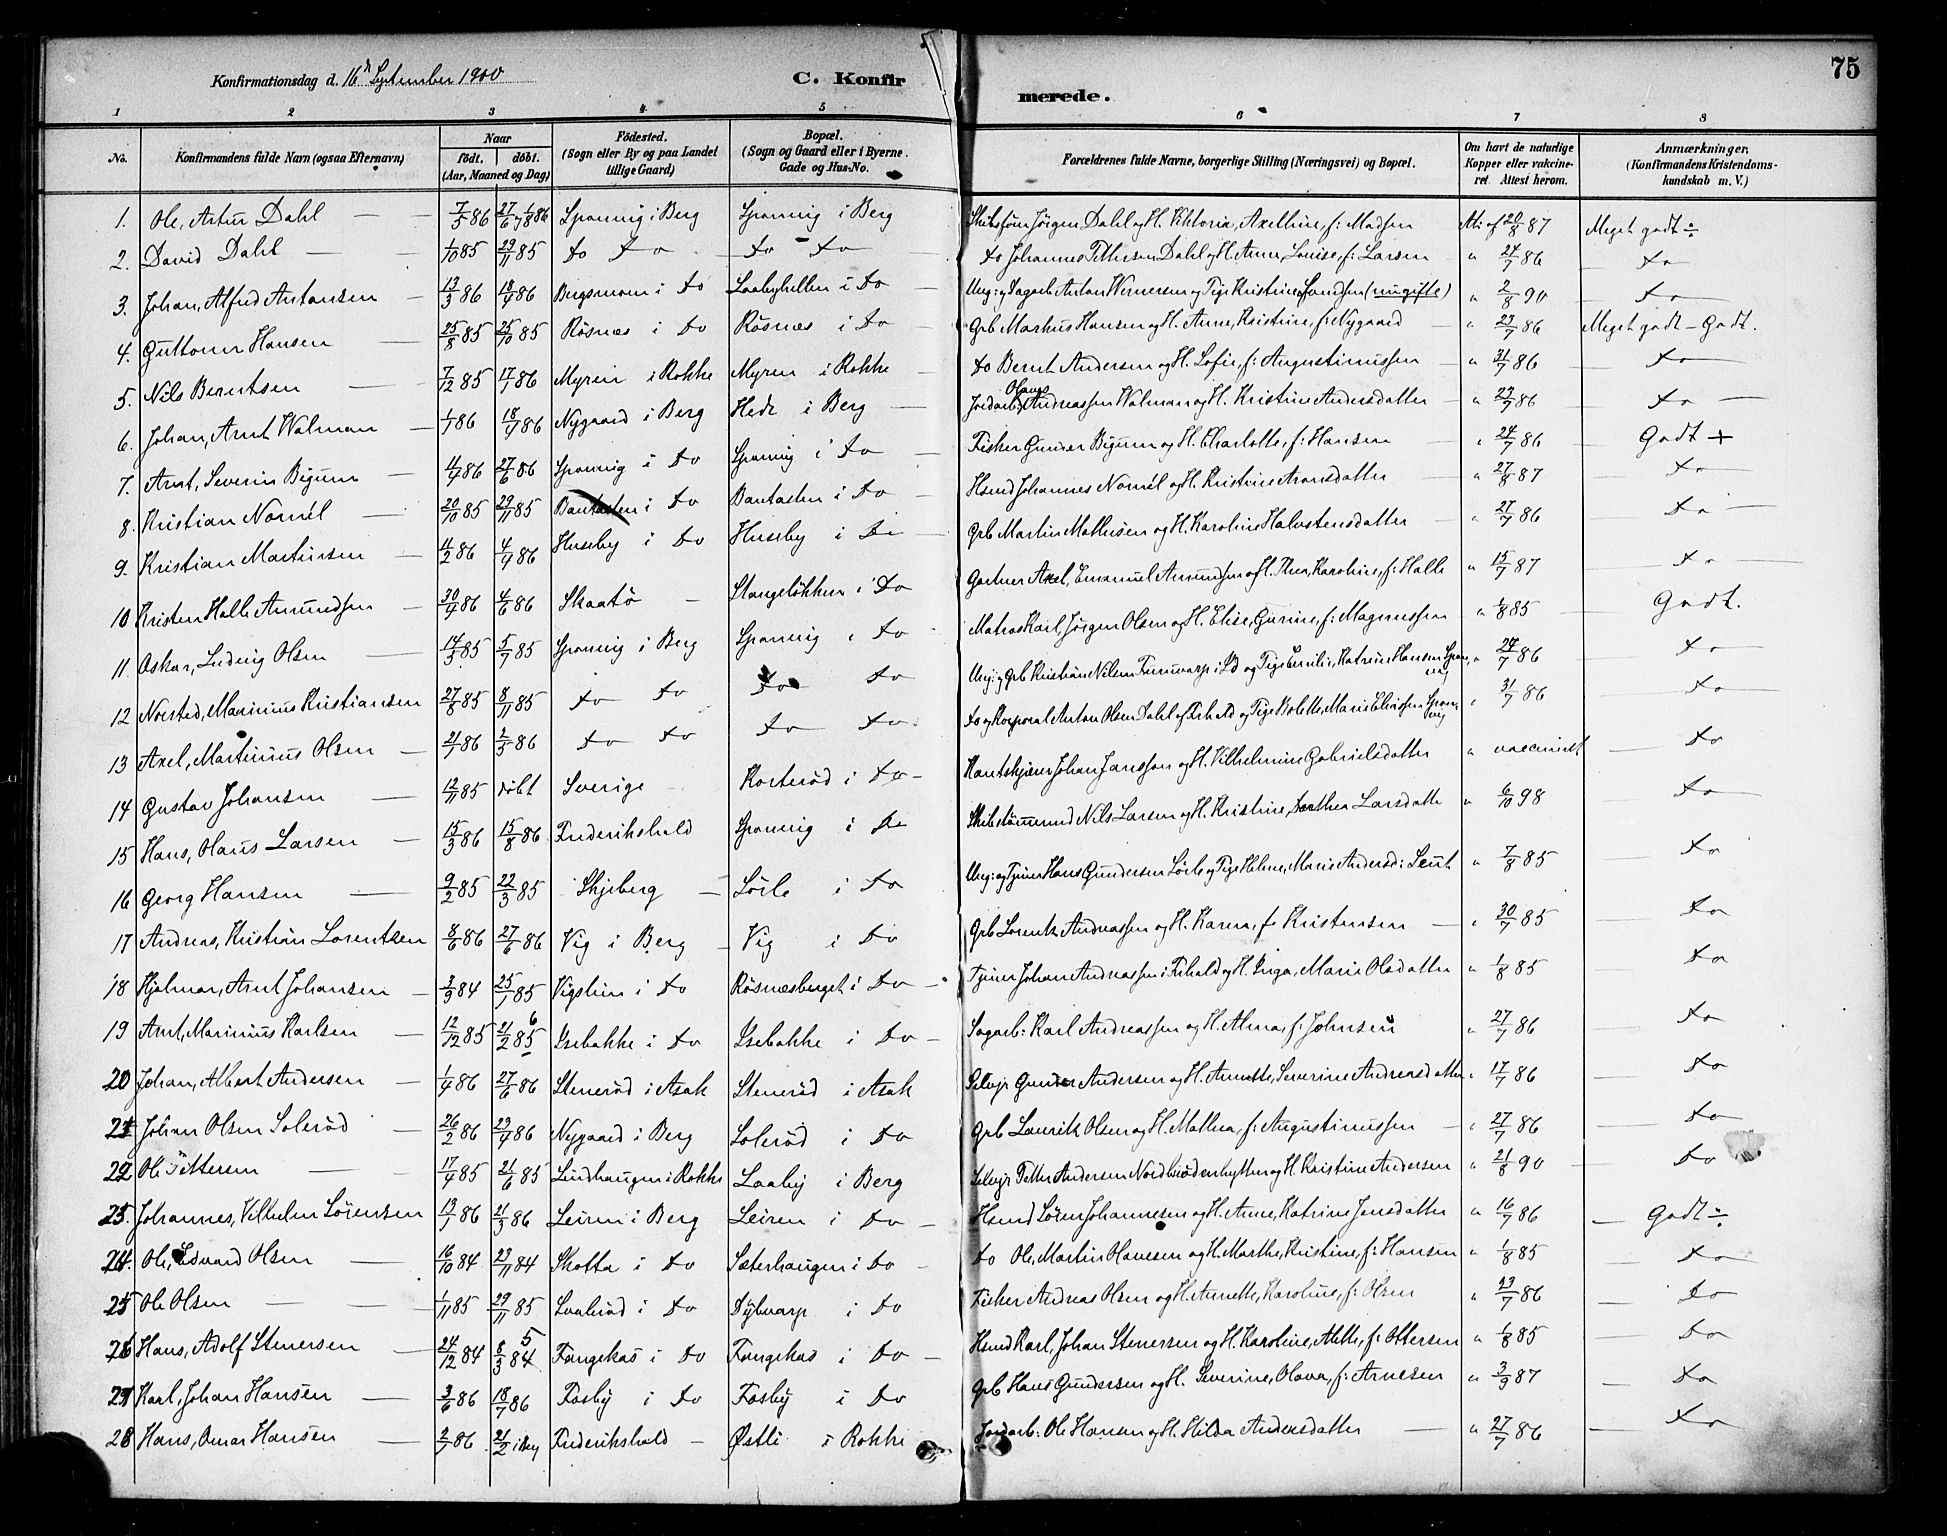 75
Konfirmationsdag d. 16de September 1900 C. Konfirmerede.
1 2 3 4 5 6 7 8
No. Konfirmandens fulde Navn (ogsaa Efternavn) Naar født. døbt. (Aar, Maaned og Dag) Födested. (Sogn eller By og paa Landet tillige Gaard) Bopæl. (Sogn og Gaard eller i Byerne. Gade og Hus-No. Forældrenes fulde Navne, borgerlige Stilling (Næringsvei) og Bopæl. Om havt de naturlige Kopper eller vakcineret. Attest herom. Anmærkninger, (Konfirmandens Kristendomskundskab m. V.)
1. Ole, Artur Dahl 7/5 86 27/6 86 Sponvig i Berg Sponvig i Berg Jörgen Dahl og H. Viktoria, Axelline, f: Madsen 20/8 87 Meget godt ÷
2. David Dahl 1/10 85 29/11 85 do do do do do Johannes Pettersen Dahl og H. Anne, Louise, f: Larsen " 24/7 86 do
3. Johan, Alfred Antonsen 13/3 86 18/4 86 i do Laabyhellen i do Ung: og Sagarb Anton Wernersen og Pige Kristine (ugifte) " 2/8 90 do
4. Guttorm Hansen 25/8 85 25/10 85 Rösnæs i do Rösnæs i do Grb Markus Hansen og H. Anne, Kristine, f: Nygaard " 23/7 86 Meget godt - Godt.
5. Nils Berntsen 7/12 85 17/1 86 Myren i Rokke Myren i Rokke do Bernt Andersen og H. Sofie, f: Augustinussen " 31/7 86 do
6. Johan, Arnt Walman 1/1 86 18/4 86 Nygaard i Berg Hede i Berg Jordarb Olaus Andreassen Walman og H. Kristine Andersdatter " 23/7 86 do
7. Arnt, Severin Bigum 4/4 86 27/6 86 Sponvig i do Sponvig i do Fisker Gunder Bigum og H. Charlotte, f: Hansen " 24/7 86 Godt +
8. Kristian Normél 20/10 85 29/11 85 Bautasten i do Bautasten i do Hsmd Johannes Normél og H. Kristine Aronsdatter " 27/8 87 do
9. Kristian Martinsen 11/2 86 4/4 86 Huseby i do Huseby i do Grb Martin Mathisen og H. Karoline Halvstensdatter " 27/7 86 do
10 Kristen Halle Amundsen 30/4 86 4/6 86 Skaatö Stangelökken i do Gartner Axel, Emanuel Amundsen og H. Thea, Karoline, f: Halle " 15/7 87 do
11. Oskar, Ludvig Olsen 14/3 85 5/7 85 Sponvig i Berg Sponvig i do Matros Karl, Jörgen Olsen og H. Elise, Gurine, f: Magnussen " 1/8 85 Godt.
12 Norsted, Marinius Kristiansen 27/8 85 8/11 85 do do do do Ung: og Grb Kristian Nilsen og Pige Emilie, Katrine Hansen Sponvig " 24/7 86 do
13 Axel, Martinius Olsen 21/1 86 2/3 86 do do do do do og Korporal Anton Olsen Dahl og Pige Bolette, Marie Sponvig " 31/7 86 do
14 Gustav Johansen 12/11 85 döbt Sverige Korteröd i do Johan Jansson og H. Vilhelmine Gabrielsdatter " vaccineret do
15 Hans, Olaus Larsen 15/3 86 15/8 86 Frederikshald Sponvig i do Skibstömmermd Nils Larsen og H. Kristine, Dorthea Larsdatter " 6/10 98 do
16 Georg Hansen 9/2 85 22/3 85 Skjeberg Lörle i do Ung: og Tjener Hans Gundersen Lörle og Pige Helene, Marie Andersd: " 7/8 85 do
17 Andreas, Kristian Lorentzen 8/6 86 27/6 86 Vig i Berg Vig i do Grb Lorentz Andreassen og H. Karen, f Kristensen " 30/7 85 do
18 Hjalmar, Arnt Johansen 2/9 84 25/1 85 i do Rösnæsberget i do Tjener Johan Andreassen i Frhald og H. Inga, Marie Olsdatter " 1/8 85 do
19 Arnt, Marinius Karlsen 12/12 85 21/2 85 6 Isebakke i do Isebakke i do Sagarb: Karl Andreassen og H. Alma, f: Johnsen " 27/7 86 do
20 Johan, Albert Andersen 1/4 86 27/6 86 Steneröd i Asak Steneröd i Asak Selvejr Gunder Andersen og H. Annette, Severine Andreasdatter " 17/7 86 do
21 Johan Olsen Soleröd 26/2 86 23/4 86 Nygaard i Berg Soleröd i do Grb Lauritz Olsen og H. Mathea, f: Augustinussen " 27/7 86 do
22 Ole Pettersen 17/4 85 21/6 85 Lundhaugen i Rokke Laaby i Berg Selvejr Petter Andersen og H. Kristine Andersen " 21/8 90 do
23 Johannes, Vilhelm Sörensen 13/1 86 21/3 86 Leiren i Berg Leiren i do Hsmd Sören Johannesen og H. Anne, Katrine Jensdatter " 16/7 86 Godt ÷
24 Ole, Edvard Olsen 16/10 84 23/11 84 Skotta i do Sæterhaugen i do do Ole, Martin Olavesen og H. Marthe, Kristine, f: Hansen " 1/8 85 do
25 Ole Olsen 1/11 85 29/11 85 i do i do Fisker Andreas Olsen og H. Annette, Karoline, f: Olsen " 23/7 86 do
26 Hans, Adolf Stenersen 24/12 84 8/3 84 5 Fangekas i do Fangekas i do Hsmd Karl, Johan Stenersen og H. Karoline, Mette, f: Ottersen " 1/8 85 do
27 Karl, Johan Hansen 3/6 86 18/7 86 Fosby i do Fosby i do Grb Hans Gundersen og H. Severine, Olava, f: Arnesen " 3/9 87 do
28 Hans, Omar Hansen 2/1 86 21/2 Frederikshald Østli i Rokke Jordarb: Ole Hansen og H. Hilda Andersdatter " 27/7 86 do